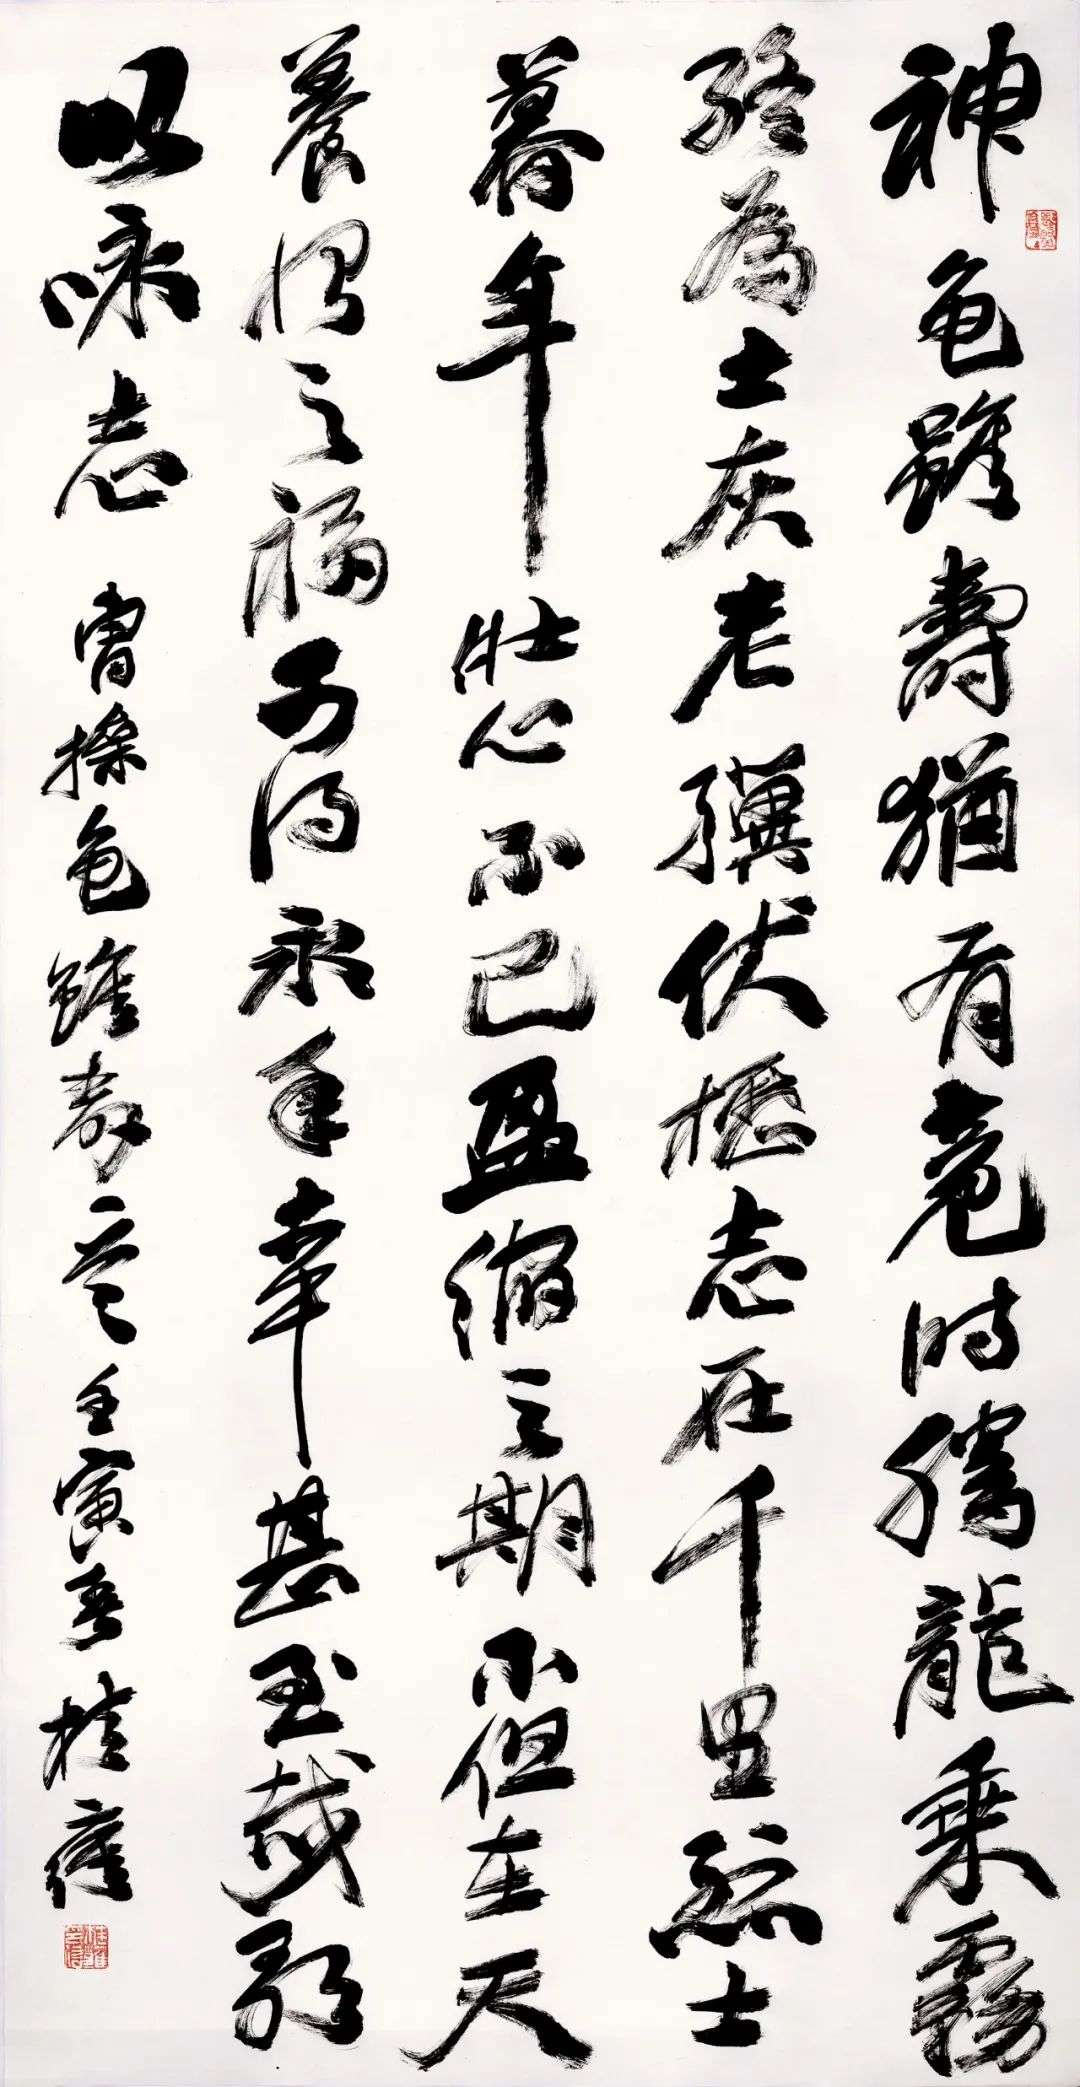 神龜雖壽猶有竟時騰龍乘霧
終為土灰老驥伏櫪志在千里烈士
暮年壯心不已盈縮之期不但在天
養怡之福可得永年幸甚至哉歌
以咏志 曹操龜雖壽 壬寅春